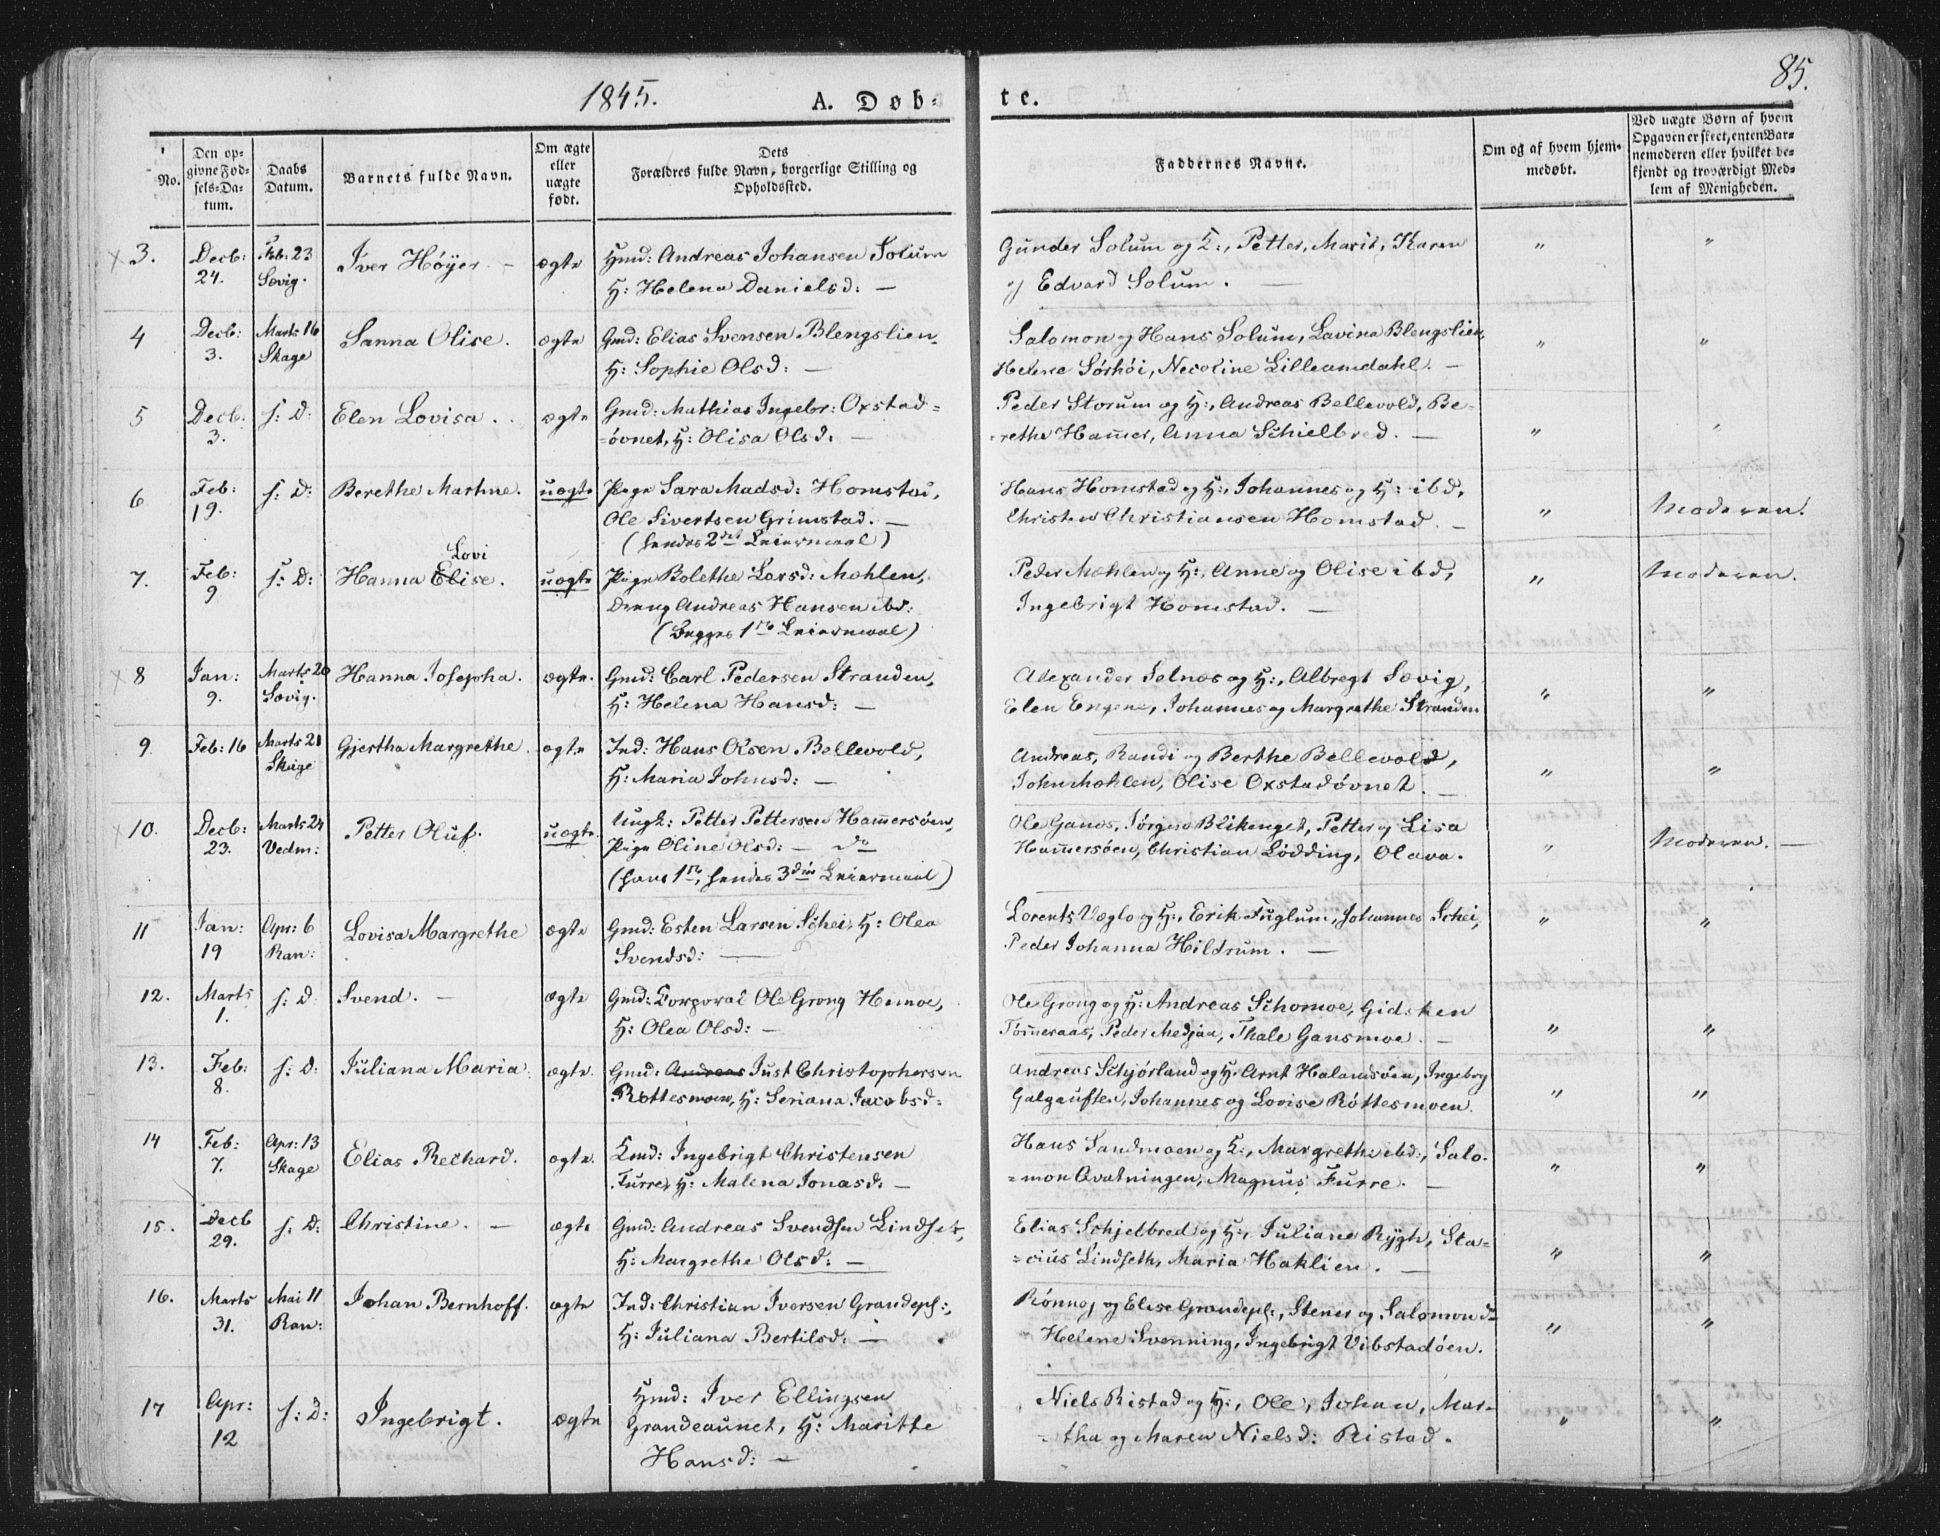 1845. A. Døb-
te. 85.
No.
Den op-
givne Fød-
sels-Da-
tum.
Daabs
Datum.
Barnets fulde Navn.
Om ægte
eller
uægte
født.
Dets
Forældres fulde Navn, borgerlige Stilling og
Opholdssted.
Faddernes Navne.
Om og af hvem hjem-
medøbt.
Ved uægte Børn af hvem
Opgaven er skeet, enten Bar-
nemoderen eller hvilket be-
kjendt og troværdigt Med-
lem af Menigheden.
3. Decb: 24. Feb: 23 Sævig. Iver Høyer. — ægte Hmd: Andreas Johansen Solum
H: Helena Danielsd: —
Gunder Solum og K:, Petter, Marit, Karen " "
og Edvard Solum.
4 Decb: 3. Marts 16 Skage Sanna Olise. ægte Gmd: Elias Svensen Blengslien,
H: Sophie Olsd: —
Salomon og Hans Solum, Lavina Blengslien, " "
Helene Sørhøi, Nicoline Lilleamdahl. —
5 Decb: 3. s: D: Elen Lovisa. ægte Gmd: Mathias Ingebr: Oxstad=
=øvnet, H: Olisa Olsd: —
Peder Storum og H:, Andreas Bellevold, Be-
rethe Hamer, Anna Schielbred. — " "
6 Feb: 19. s: D: Berethe Martine. uægte Pige Sara Madsd: Homstad,
Ole Sivertsen Grimstad. —
(hendes 2det Leiermaal)
Hans Homstad og H:, Johannes og H: ibd,
Christen Christiansen Homstad. — " Moderen.
7. Feb: 9 s: D: Hanna Elise. Lovi uægte Pige Bolethe Larsd: Mæhlen,
Dreng Andreas Hansen ibd:
(Begges 1ste Leiermaal)
Peder Mæhlen og H:, Anne og Olise ibd, " Moderen.
Ingebrigt Homstad. —
8 Jan: 9. Marts 20 Sævig. Hanna Josepha. ægte. Gmd: Carl Pedersen Stranden,
H: Helena Hansd: —
Alexander Selnæs og H:, Albregt Sævig,
Elen Engene, Johannes og Margrethe Stranden " "
9. Feb: 16 Marts 21 Skage Gjertha Margrethe. ægte Ind: Hans Olsen Bellevold,
H: Maria Johnsd: —
Andreas, Randi og Berthe Bellevold,
John Mæhlen, Olise Oxstadøvnet. — " "
10. Decb: 23. Marts 24 Vedm: Petter Oluf. uægte. Ungk: Petter Pettersen Hamersøen,
Pige Oline Olsd: — do
(hans 1ste, hendes 3die Leiermaal)
Ole Ganes, Jørgen Blikenget, Petter og Lisa
Hamersøen, Christian Lødding, Olava. " Moderen. —
11 Jan: 19 Apr: 6 Ran: Lovisa Margrethe ægte Gmd: Esten Larsen Schei, H: Olea
Svendsd: —
Lorents Veglo og H:, Erik Fuglum, Johannes Schei, " "
Peder Johanna Hildrum. —
12. Marts 1. s: D: Svend. — ægte Gmd: Corporal Ole Grong Hemoe,
H: Olea Olsd: —
Ole Grong og H: Andreas Schomoe, Gidsken
Tømeraas, Peder Medjaa, Thale Gansmoe. — " "
13. Feb: 8. s: D: Juliana Maria. ægte. Gmd: Andreas Just Christophersen
Røttesmoen, H: Seriana Jacobsd:
Andreas Schjørland og H: Arnt Halandsøen, Ingebrg
Galgauften, Johannes og Lovise Røttesmoen. " "
14 Feb: 7. Apr: 13 Skage Elias Rechard. ægte. Lmd: Ingebrigt Christensen
Furre, H: Malena Jonasd: —
Hans Sandmoen og K:, Margrethe ibd:, Salo-
=mon Qvatningen, Magnus Furre. — " "
15. Decb 29. s: D: Christine. — ægte Gmd: Andreas Svendsen Lindset,
H: Margrethe Olsd: —
Elias Schjelbred og H:, Juliane Rygh, Sta-
=cius Lindseth, Maria Haklien. — " "
16. Marts 31. Mai 11 Ran: Johan Bernhoff. ægte Ind: Christian Iversen Grandepl:,
H: Juliana Bertilsd: —
Rønnoj og Elise Grandepl:, Stener og Salomon do
Helene Svenning, Ingebrigt Vibstadøen. " "
17 Apr: 12 s: D: Ingebrigt. ægte Hmd: Iver Ellingsen
Grandeaunet, H: Maritte
Hansd: —
Niels Ristad og H:, Ole, Johan, Mar-
tha og Maren Nielsd: Ristad. " "